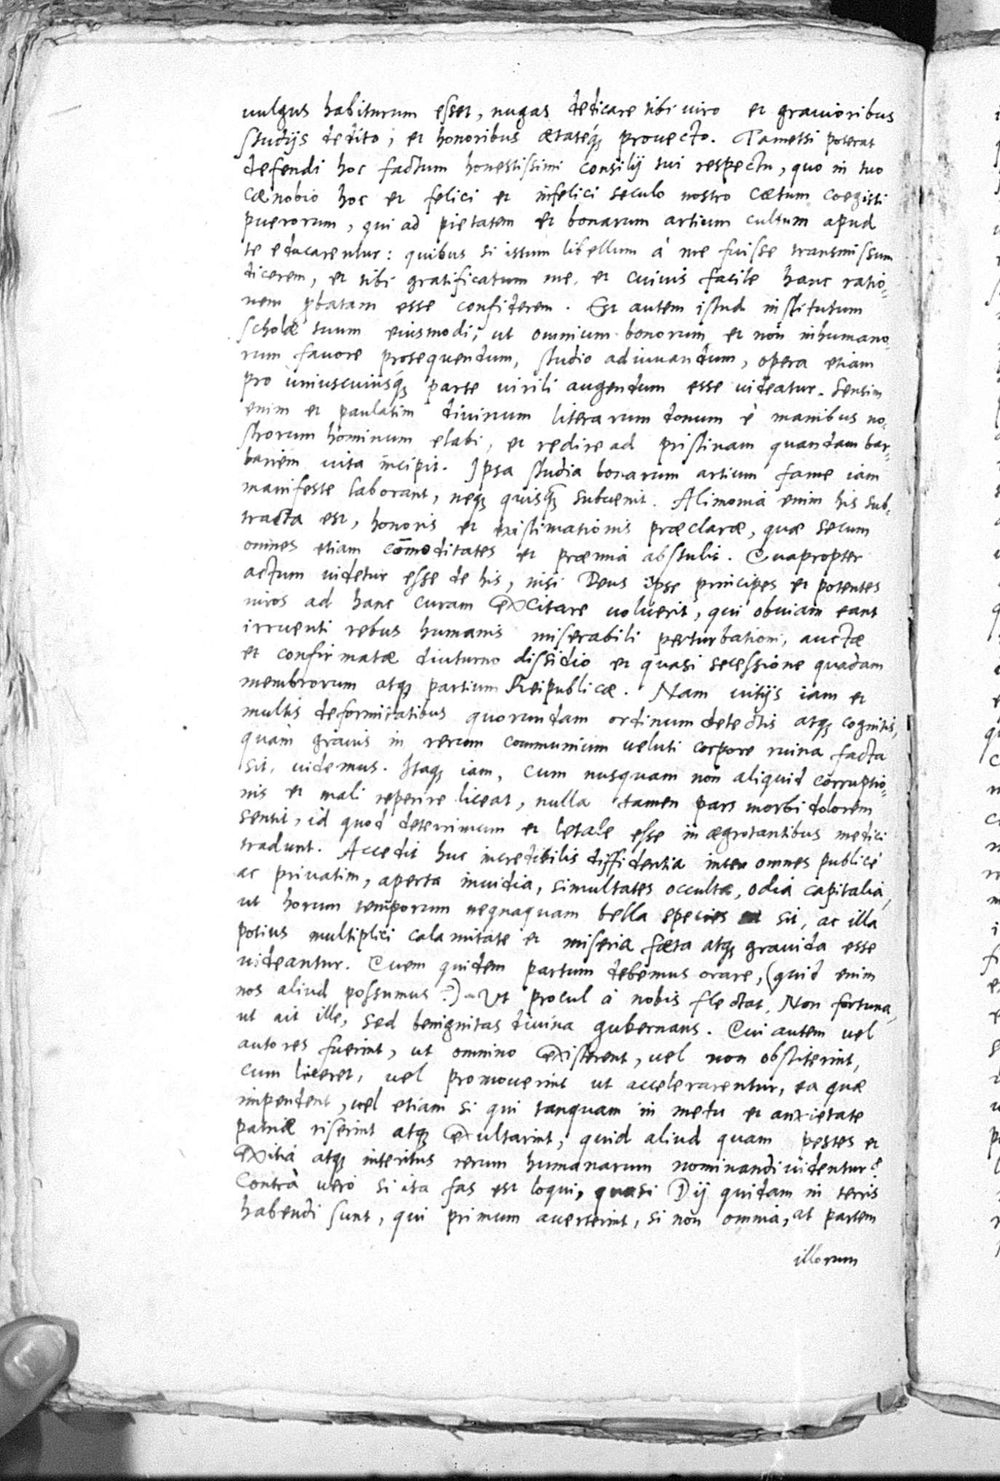 uulgus habiturum esset, nugas dedicare tibi uiro et grauioribus
studijs dedito, et honoribus ætateq; prouecto. Tametsi poterat
defendi hoc factum honestissimi consilij tui respectu, quo in tuo
cœnobio hoc et felici et infelici seculo nostro cœtum coegisti
puerorum, qui ad pietatem et bonarum artium cultum apud
te educarentur: quibus si istum libellum à me fuisse transmissum
dicerem, et tibi gratificatum me, et cuiuis facile hanc ratio-
nem ꝓbatam esse confiderem. Est autem istud institutum
scholæ tuum eiusmodi, ut omnium bonorum et non inhumano-
rum fauore prosequendum, studio adiuuandum, opera etiam
pro uniuscuiusq; parte uirili augendum esse uideatur. Sensim
enim et paulatim diuinum literarum donum è manibus no-
strorum hominum elabi, et redire ad pristinam quandam bar-
bariem uita incipit. Ipsa studia bonarum artium fame iam
manifeste laborant, neq; quisq̃ subuenit. Alimonia enim his sub-
tracta est, honoris et existimationis præclaræ, quæ secum
omnes etiam cōmoditates et præmia abstulit. Quapropter
actum uidetur esse de his, nisi Deus ipse principes et potentes
uiros ad hanc curam excitare uoluerit, qui obuiam eant
irruenti rebus humanis miserabili perturbationi, auctæ
et confirmatæ diuturno dissidio et quasi secessione quadam
membrorum atq; partium Reipublicæ. Nam uitijs iam et
multis deformitatibus quorundam ordinum detectis atq; cognitis,
quam grauis in rerum communium ueluti corpore ruina facta
sit, uidemus. Itaq; iam, cum nusquam non aliquid corruptio-
nis et mali reperire liceat, nulla tamen pars morbi dolorem
sentit, id quod deterrimum et letale esse in ægrotantibus medici
tradunt. Accedit huc incredibilis diffidentia inter omnes publicè
ac priuatim, aperta inuidia, simultates occultæ, odia capitalia,
ut horum temporum nequaquam bella species sit, ac illa
potius multiplici calamitate et miseria fœta atq; grauida esse
uideantur. Quem quidem partum debemus orare, (quid enim
nos aliud possumus?) Ut procul à nobis flectat, Non fortuna,
ut ait ille, sed benignitas diuina gubernans. Qui autem uel
autores fuerint, ut omnino existerent, uel non obstiterint,
cum liceret, uel promouerint ut accelerarentur, ea quæ
impendent, uel etiam si qui tanquam in metu et anxietate
patriæ riserint atq; exultarint, quid aliud quam pestes et
exitia atq; interitus rerum humanarum nominandi uidentur?
Contrà uerò si ita fas est loqui, quasi Dij quidam in terris
habendi sunt, qui primum auerterint, si non omnia, at partem
illorum